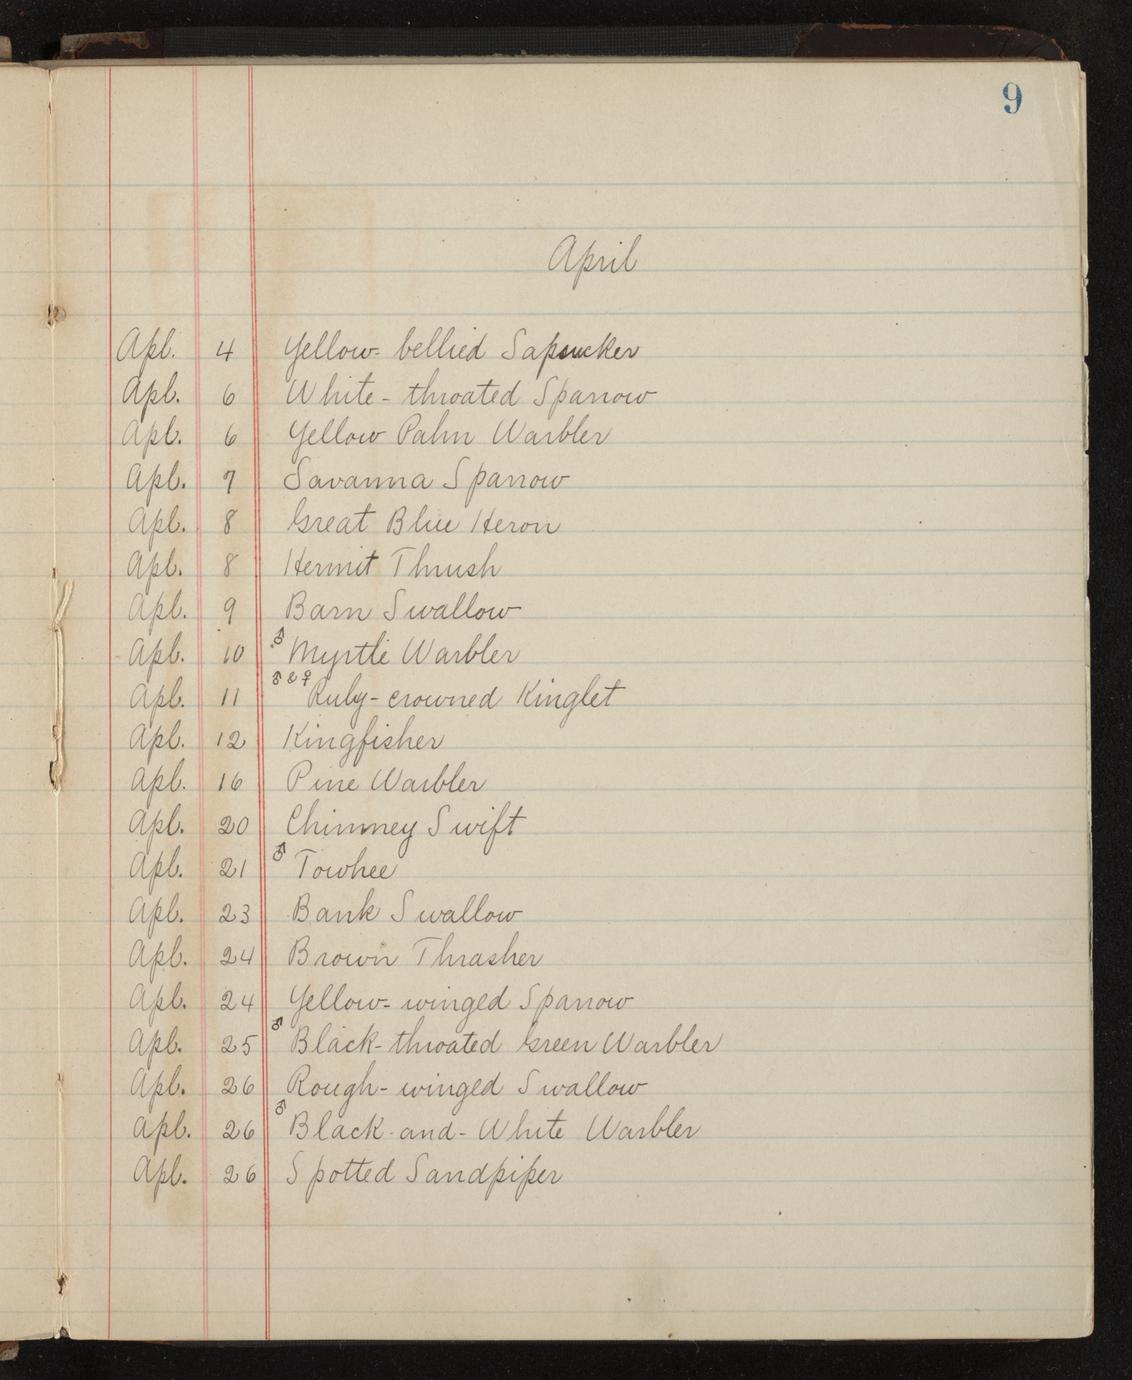 9
April
Apl. 4 Yellow-bellied Sapsucker
Apl. 6 White-throated Sparrow
Apl. 6 Yellow Palm Warbler
Apl. 7 Savanna Sparrow
Apl. 8 Great Blue Heron
Apl. 8 Hermit Thrush
Apl. 9 Barn Swallow
Apl. 10 ♂ Myrtle Warbler
Apl. 11 ♂ & ♀ Ruby-crowned Kinglet
Apl. 12 Kingfisher
Apl. 16 Pine Warbler
Apl. 20 Chimney Swift
Apl. 21 ♂ Towhee
Apl. 23 Bank Swallow
Apl. 24 Brown Thrasher
Apl. 24 Yellow-winged Sparrow
Apl. 25 ♂ Black-throated Green Warbler
Apl. 26 Rough-winged Swallow
Apl. 26 ♂ Black-and-White Warbler
Apl. 26 Spotted Sandpiper